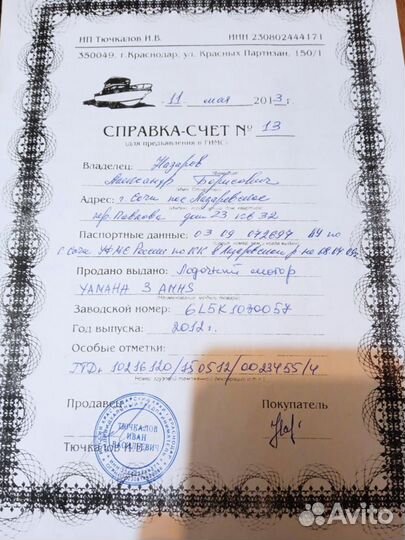 ИП Тючкалов И.В. ИНН 230802444171
350049, г.Краснодар, ул. Красных Партизан, 150/1
11 мая 2013г.
СПРАВКА-СЧЕТ № 13
(для предъявления в ГИМС)
Владелец: Назаров
Александр Борисович
Адрес: г Сочи пос Лазаревское
Павлова дом 23 кв 32
Паспортные данные: 03 09
г Сочи УФМС России по КК в
Продано выдано: Лодочный мотор
YAMAHA 3 AMHS
Заводской номер: 6L5K1030057
Год выпуска: 2012г.
Особые отметки:
ГТД 10216120/150512/0023455/4
Продавец Покупатель
ТЮЧКАЛОВ
ИВАН
ВАСИЛЬЕВИЧ
Тючкалов И.В.
Avito